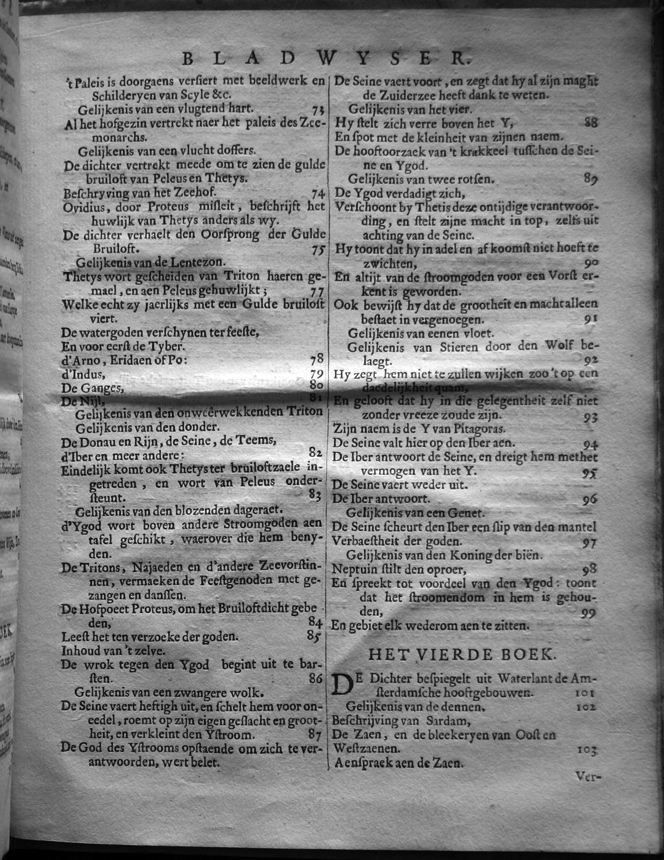 BLADWYSER.
't Paleis is doorgaens versiert met beeldwerk en
Schilderyen van Scyle &c.
Gelijkenis van een vlugtend hart. 73
Al het hofgezin vertrekt naer het paleis des Zee-
monarchs.
Gelijkenis van een vlucht doffers.
De dichter vertrekt meede om te zien de gulde
bruiloft van Peleus en Thetys.
Beschryving van het Zeehof. 74
Ovidius, door Proteus misleit, beschrijft het
huwlijk van Thetys anders als wy.
De dichter verhaelt den Oorsprong der Gulde
Bruiloft. 75
Gelijkenis van de Lentezon.
Thetys wort gescheiden van Triton haeren ge-
mael, en aen Peleus gehuwlijkt; 77
Welke echt zy jaerlijks met een Gulde bruiloft
viert.
De watergoden verschynen ter feeste,
En voor eerst de Tyber.
d'Arno, Eridaen of Po: 78
d'Indus, 79
De Ganges, 80
De Nijl, 81
Gelijkenis van den onweêrwekkenden Triton
Gelijkenis van den donder.
De Donau en Rijn, de Seine, de Teems,
d'Iber en meer andere: 82
Eindelijk komt ook Thetys ter bruiloftzaele in-
getreden, en wort van Peleus onder-
steunt. 83
Gelijkenis van den blozenden dageraet.
d'Ygod wort boven andere Stroomgoden aen
tafel geschikt, waerover die hem beny-
den.
De Tritons, Najaeden en d'andere Zeevorstin-
nen, vermaeken de Feestgenoden met ge-
zangen en danssen.
De Hofpoeet Proteus, om het Bruiloftdicht gebe
den, 84
Leest het ten verzoeke der goden. 85
Inhoud van 't zelve.
De wrok tegen den Ygod begint uit te bar-
sten. 86
Gelijkenis van een zwangere wolk.
De Seine vaert heftigh uit, en schelt hem voor on-
eedel, roemt op zijn eigen geslacht en groot-
heit, en verkleint den Ystroom. 87
De God des Ystrooms opstaende om zich te ver-
antwoorden, wert belet.
De Seine vaert voort, en zegt dat hy al zijn maght
de Zuiderzee heeft dank te weten.
Gelijkenis van het vier.
Hy stelt zich verre boven het Y, 88
En spot met de kleinheit van zijnen naem.
De hooftoorzack van 't krakkeel tusschen de Sei-
ne en Ygod.
Gelijkenis van twee rotsen. 89
De Ygod verdadigt zich,
Verschoont by Thetis deze ontijdige verantwoor-
ding, en stelt zijne macht in top, zelfs uit
achting van de Seine.
Hy toont dat hy in adel en afkoomst niet hoeft te
zwichten, 90
En altijt van de stroomgoden voor een Vorst er-
kent is geworden.
Ook bewijst hy dat de grootheit en macht alleen
bestaet in vergenoegen. 91
Gelijkenis van eenen vloet.
Gelijkenis van Stieren door den Wolf be-
laegt. 92
Hy zegt hem niet te zullen wijken zoo 't op een
daedelijkheit quam,
En gelooft dat hy in die gelegentheit zelf niet
zonder vreeze zoude zijn. 93
Zijn naem is de Y van Pitagoras.
De Seine valt hier op den Iber aen. 94
De Iber antwoort de Seine, en dreigt hem met het
vermogen van het Y. 95
De Seine vaert weder uit.
De Iber antwoort. 96
Gelijkenis van een Genet.
De Seine scheurt den Iber een slip van den mantel
Verbaestheit der goden. 97
Gelijkenis van den Koning der biën.
Neptuin stilt den oproer, 98
En spreekt tot voordeel van den Ygod: toont
dat het stroomendom in hem is gehou-
den, 99
En gebiet elk wederom aen te zitten.
HET VIERDE BOEK.
DE Dichter bespiegelt uit Waterlant de Am-
sterdamsche hooftgebouwen. 101
Gelijkenis van de dennen. 102
Beschrijving van Sardam,
De Zaen, en de bleekeryen van Oost en
Westzaenen. 103
Aenspraek aen de Zaen.
Ver-